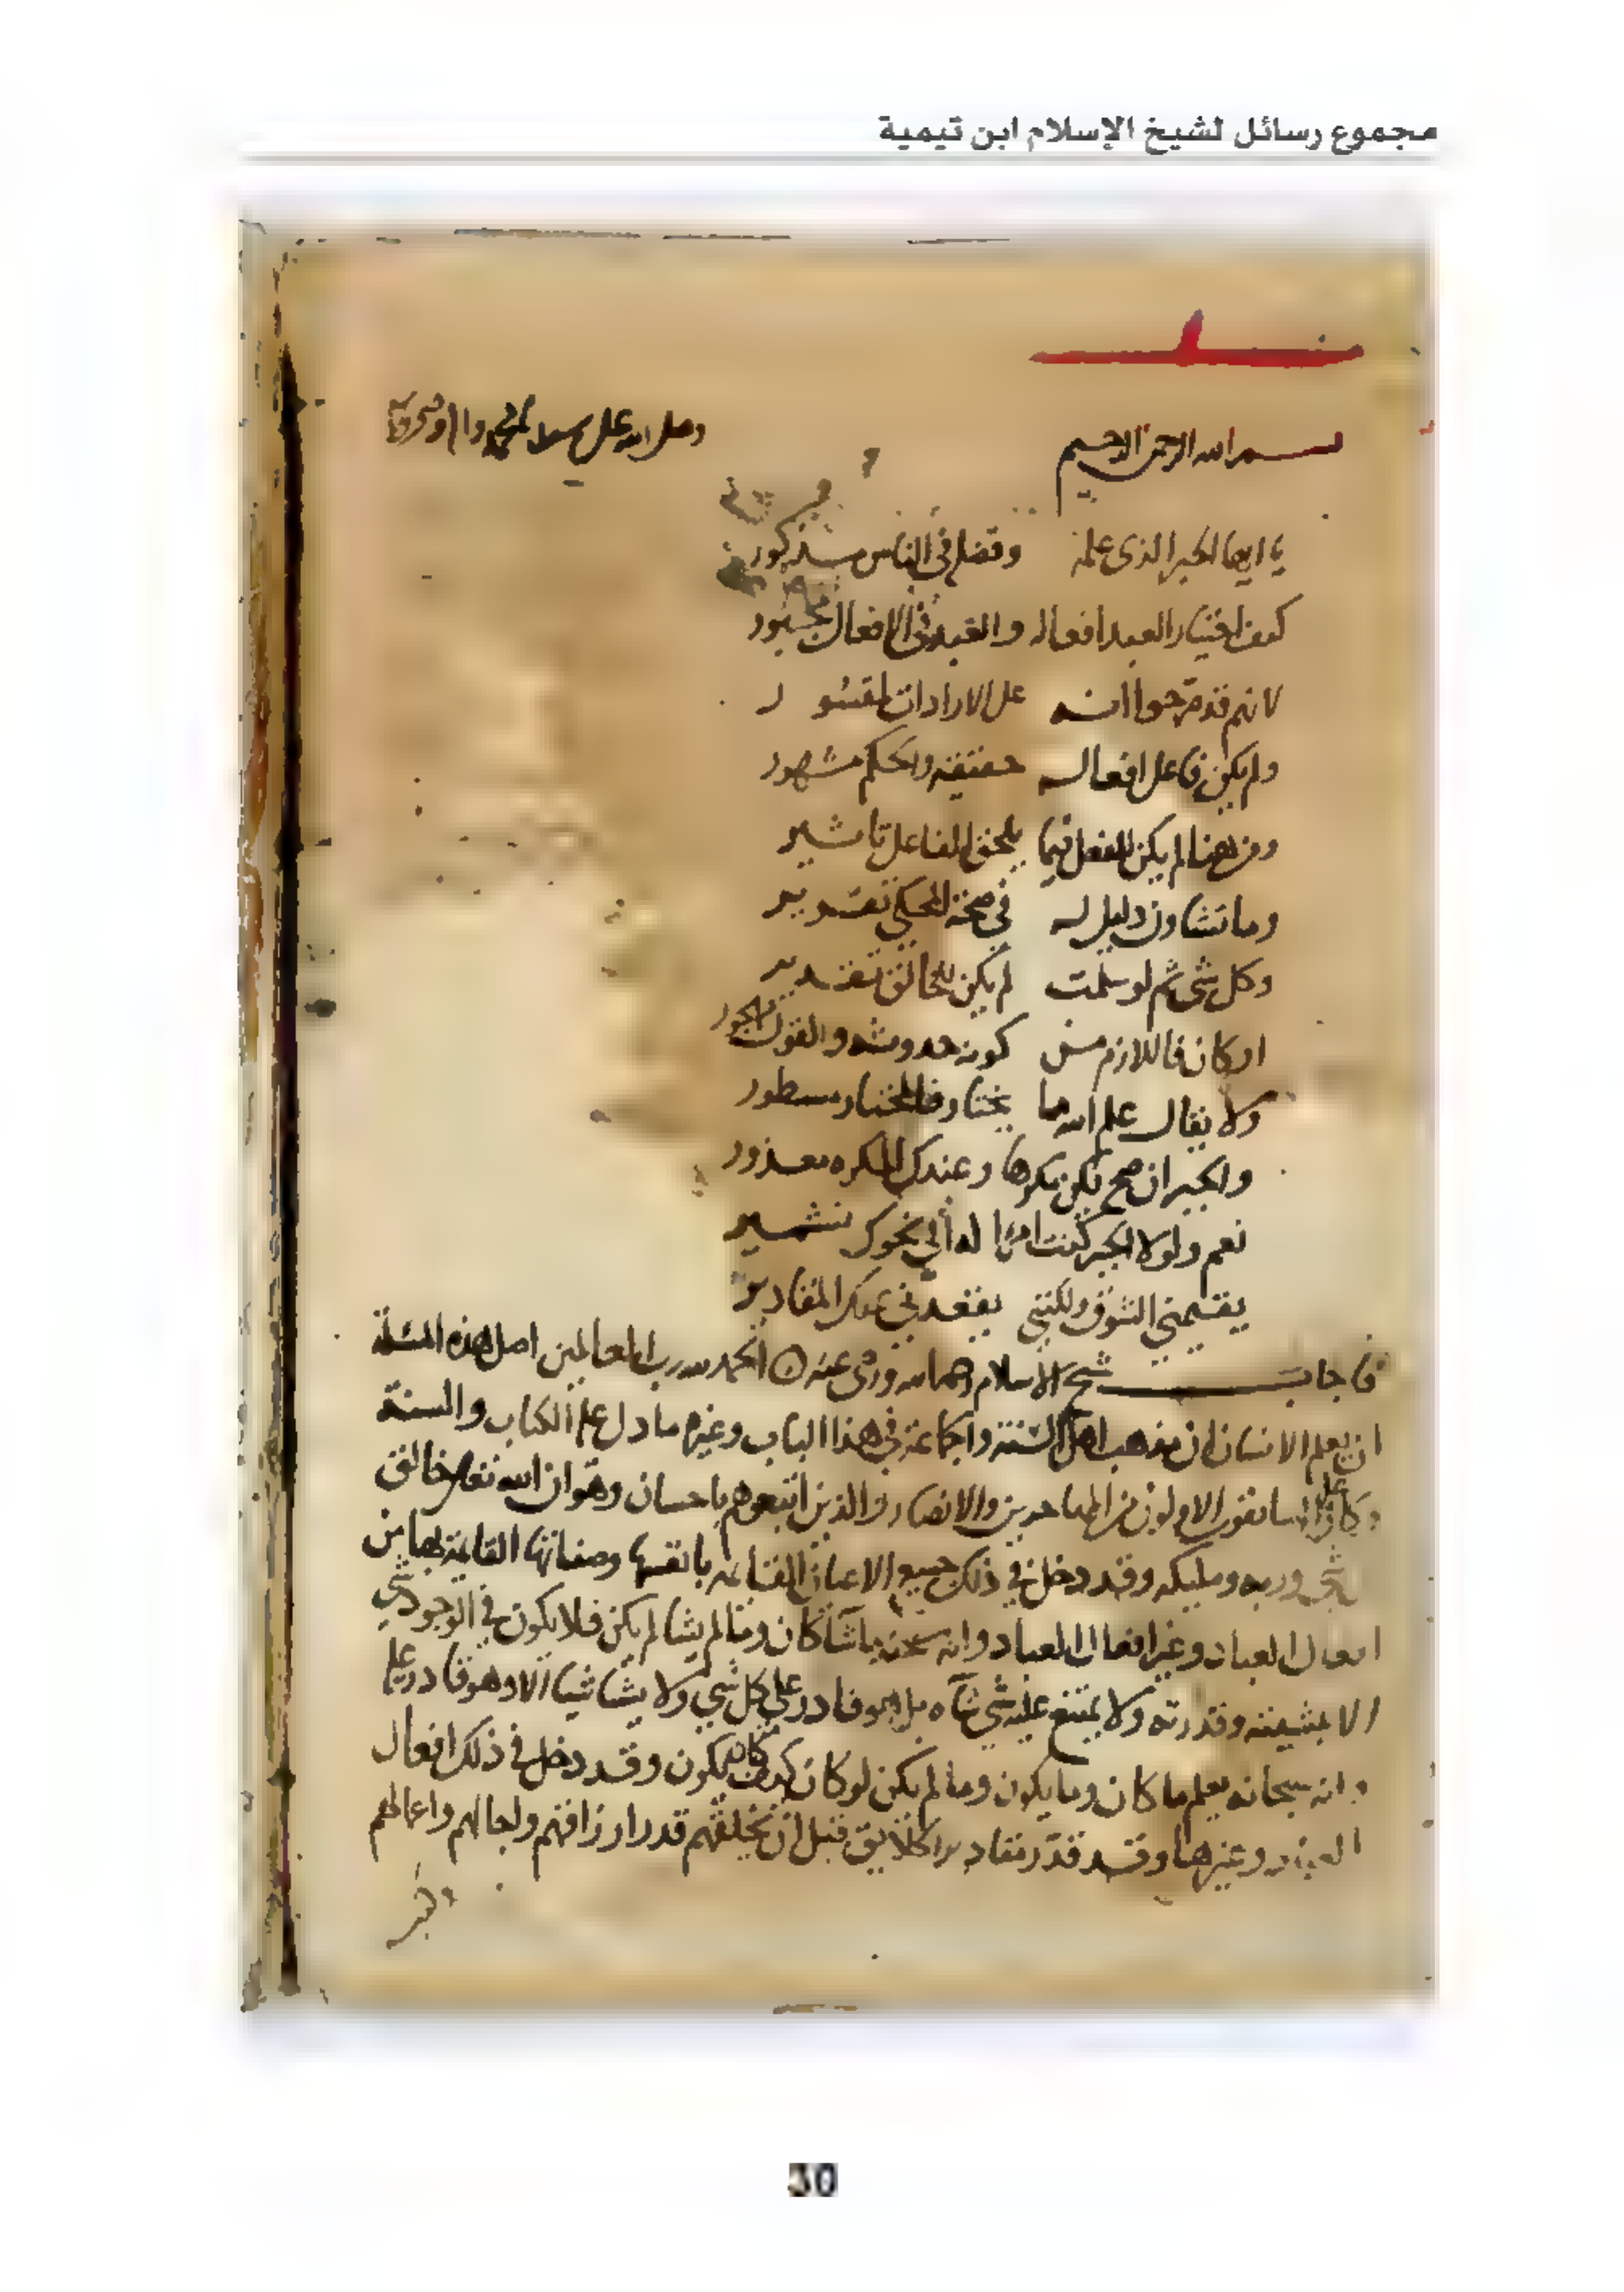 مجموع رسائل لشيخ الإسلام ابن تيمية
بسم الله الرحمن الرحيم وصلى الله على سيدنا محمد واله وصحبه
يا ايها الحبر الذي علمه وفضله في الناس مذكور
كيف اختيار العبد افعاله والعبد في الافعال مجبور
لانهم قد صرحوا انه على الارادات لمقسور
ولم يكن فاعل افعاله حقيقة والحكم مشهور
ومن هنا لم يكن للفعل فيما يلحق الفاعل تاثير
وما تشاون دليل له في صحة المحكي تقرير
وكل شي ثم لو سلمت لم يكن للخالق تقدير
او كان فاللازم من كونه حدوثه والقول مهجور
ولا يقال علم الله ما يختار فالمختار مسطور
والجبر ان صح يكن مكرها وعندك المكره معذور
نعم ولولا الجبر كنت امرا له الى نحوك تشمير
يقيمني الشوق ولكنني يقعدني عنك المقادير
فاجاب شيخ الاسلام رحمه الله ورضي عنه الحمد لله رب العالمين اصل هذه المسئلة
ان يعلم الانسان ان مذهب اهل السنة والجماعة في هذا الباب وغيره ما دل عليه الكتاب والسنة
وكان عليه السابقون الاولون من المهاجرين والانصار والذين اتبعوهم باحسان وهو ان الله تعالى خالق
كل شي وربه ومليكه وقد دخل في ذلك جميع الاعيان القائمة بانفسها وصفاتها القائمة بها من
افعال العباد وغير افعال العباد وانه سبحنه ما شا كان وما لم يشا لم يكن فلا يكون في الوجود شي
الا بمشيئته وقدرته ولا يمتنع عليه شي شاه بل هو قادر على كل شي ولا يشا شيا الا وهو قادر عليه
وانه سبحانه يعلم ما كان وما يكون وما لم يكن لو كان كيف كان يكون وقد دخل في ذلك افعال
العباد وغيرها وقد قدر مقادير الخلايق قبل ان يخلقهم قدر ارزاقهم واجالهم واعمالهم
30